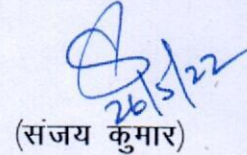 26/5/22
(संजय कुमार)